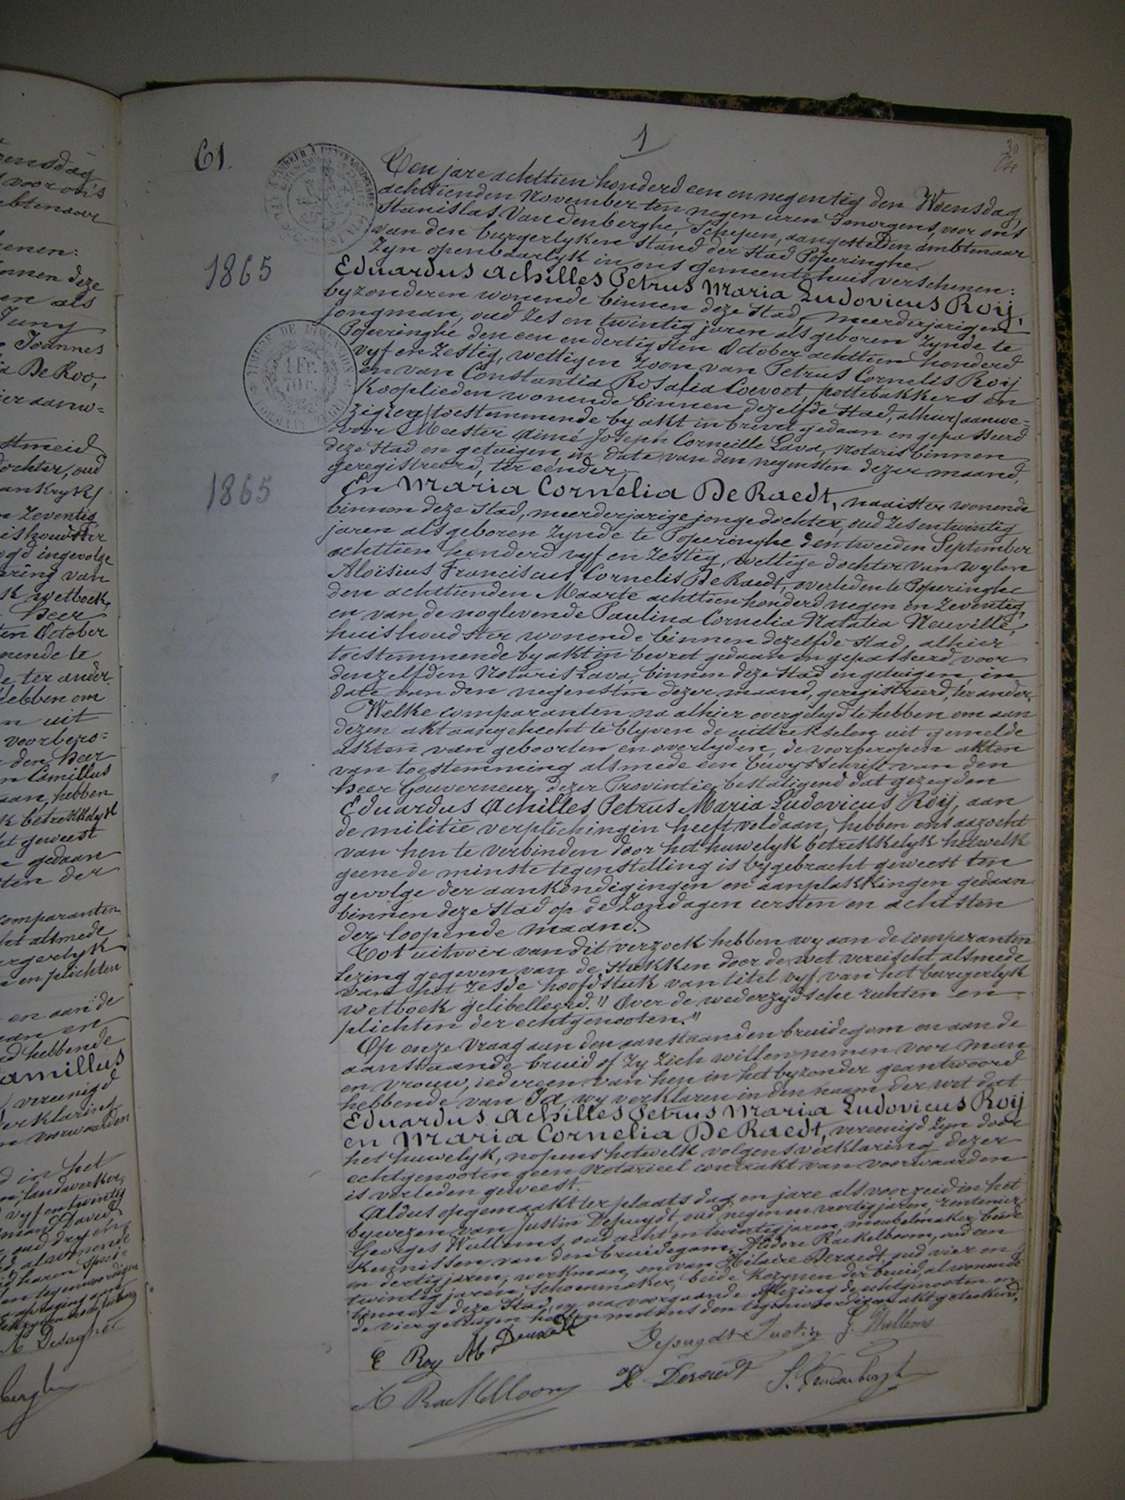 61.
1
Ten jare achttien honderd een en negentig den Woensdag
achttienden November ten negen uren 's morgens, voor ons
Stanislas Vandenberghe, Schepen, aangestelden ambtenaar
van den burgerlyken stand der stad Poperinghe
Zyn openbaarlyk in ons gemeentehuis verschenen:
1865
Eduardus Achilles Petrus Maria Ludovicus Roij,
byzonderen wonende binnen deze stad, meerderjarigen
jongman, oud zes en twintig jaren als geboren zynde te
Poperinghe den een en dertigsten October achttien honderd
vyf en zestig, wettigen zoon van Petrus Cornelis Roij
en van Constantia Rosalia Coevoet, pottebakkers en
kooplieden wonende binnen dezelfde stad, alhier
toestemmende by akt in brevet gedaan en gepasseerd
voor Meester Aimé Joseph Corneille Lava, notaris binnen
deze stad en getuigen, in date van den negensten dezer maand,
geregistreerd, ter eender;
1865
En Maria Cornelia De Raedt, naaister wonende
binnen deze stad, meerderjarige jonge dochter, oud zes en twintig
jaren als geboren zynde te Poperinghe den tweeden September
achttien honderd vyf en zestig, wettige dochter van wylen
Aloisius Franciscus Cornelis De Raedt, overleden te Poperinghe
den achttienden Maarte achttien honderd negen en zeventig
en van de noglevende Paulina Cornelia Natalia Neuville,
huishoudster wonende binnen dezelfde stad, alhier
toestemmende by akt in brevet gedaan en gepasseerd voor
denzelfden Notaris Lava, binnen deze stad en getuigen, in
date van den negensten dezer maand, geregistreerd, ter ander.
Welke comparanten na alhier overgelegd te hebben om aan
dezen akt aangehecht te blyven de uittreksels uit gemelde
akten van geboorten en overlyden, de voorberopen akten
van toestemming alsmede een bewysschrift van den
Heer Gouverneur dezer Provintie bestadigend dat gezegden
Eduardus Achilles Petrus Maria Ludovicus Roij, aan
de militie verplichtingen heeft voldaan, hebben ons aazocht
van hen te verbinden door het huwelyk betrekkelyk hetwelk
geene de minste tegenstelling is bygebracht geweest ten
gevolge der aankondigingen en aanplakkingen gedaan
binnen deze stad op de Zondagen eersten en achtsten
der loopende maand.
Tot uitvoer van dit verzoek hebben wy aan de comparanten
lezing gegeven van de stukken door de wet vereischt alsmede
van het zesde hoofdstuk van titel vyf van het burgerlyk
wetboek gelibelleerd: "Over de wederzydsche rechten en
plichten der echtgenooten."
Op onze vraag aan den aanstaanden bruidegom en aan de
aanstaande bruid of zy zich willen nemen voor man
en vrouw, iedereen van hen in het byzonder geantwoord
hebbende van Ja, wy verklaren in den naam der wet dat
Eduardus Achilles Petrus Maria Ludovicus Roij
en Maria Cornelia De Raedt, vereenigd zyn door
het huwelyk, nopens hetwelk volgens verklaring dezer
echtgenooten geen Notarieel contrakt van voorwaarden
is verleden geweest.
Aldus opgemaakt ter plaats dag en jare als voorzeid in het
bywezen van Justin Depuydt, oud negen en veertig jaren, rentenier
Georges Wullems, oud acht en twintig jaren, meubelmaker, beide
kennissen van den bruidegom, Isidore Raekelboom, oud een
en dertig jaren, werkman, en van Hilaire Deraedt, oud vier en
twintig jaren, schoenmaker, beide kozynen der bruid, al wonende
binnen deze stad, en na voorgaande aflezing de echtgenooten en
de vier getuigen hebben met ons den tegenwoordigen akt geteekend.
E Roy M Deraedt Depuydt Justin G. Wullems
H. Deraedt S. Vandenberghe